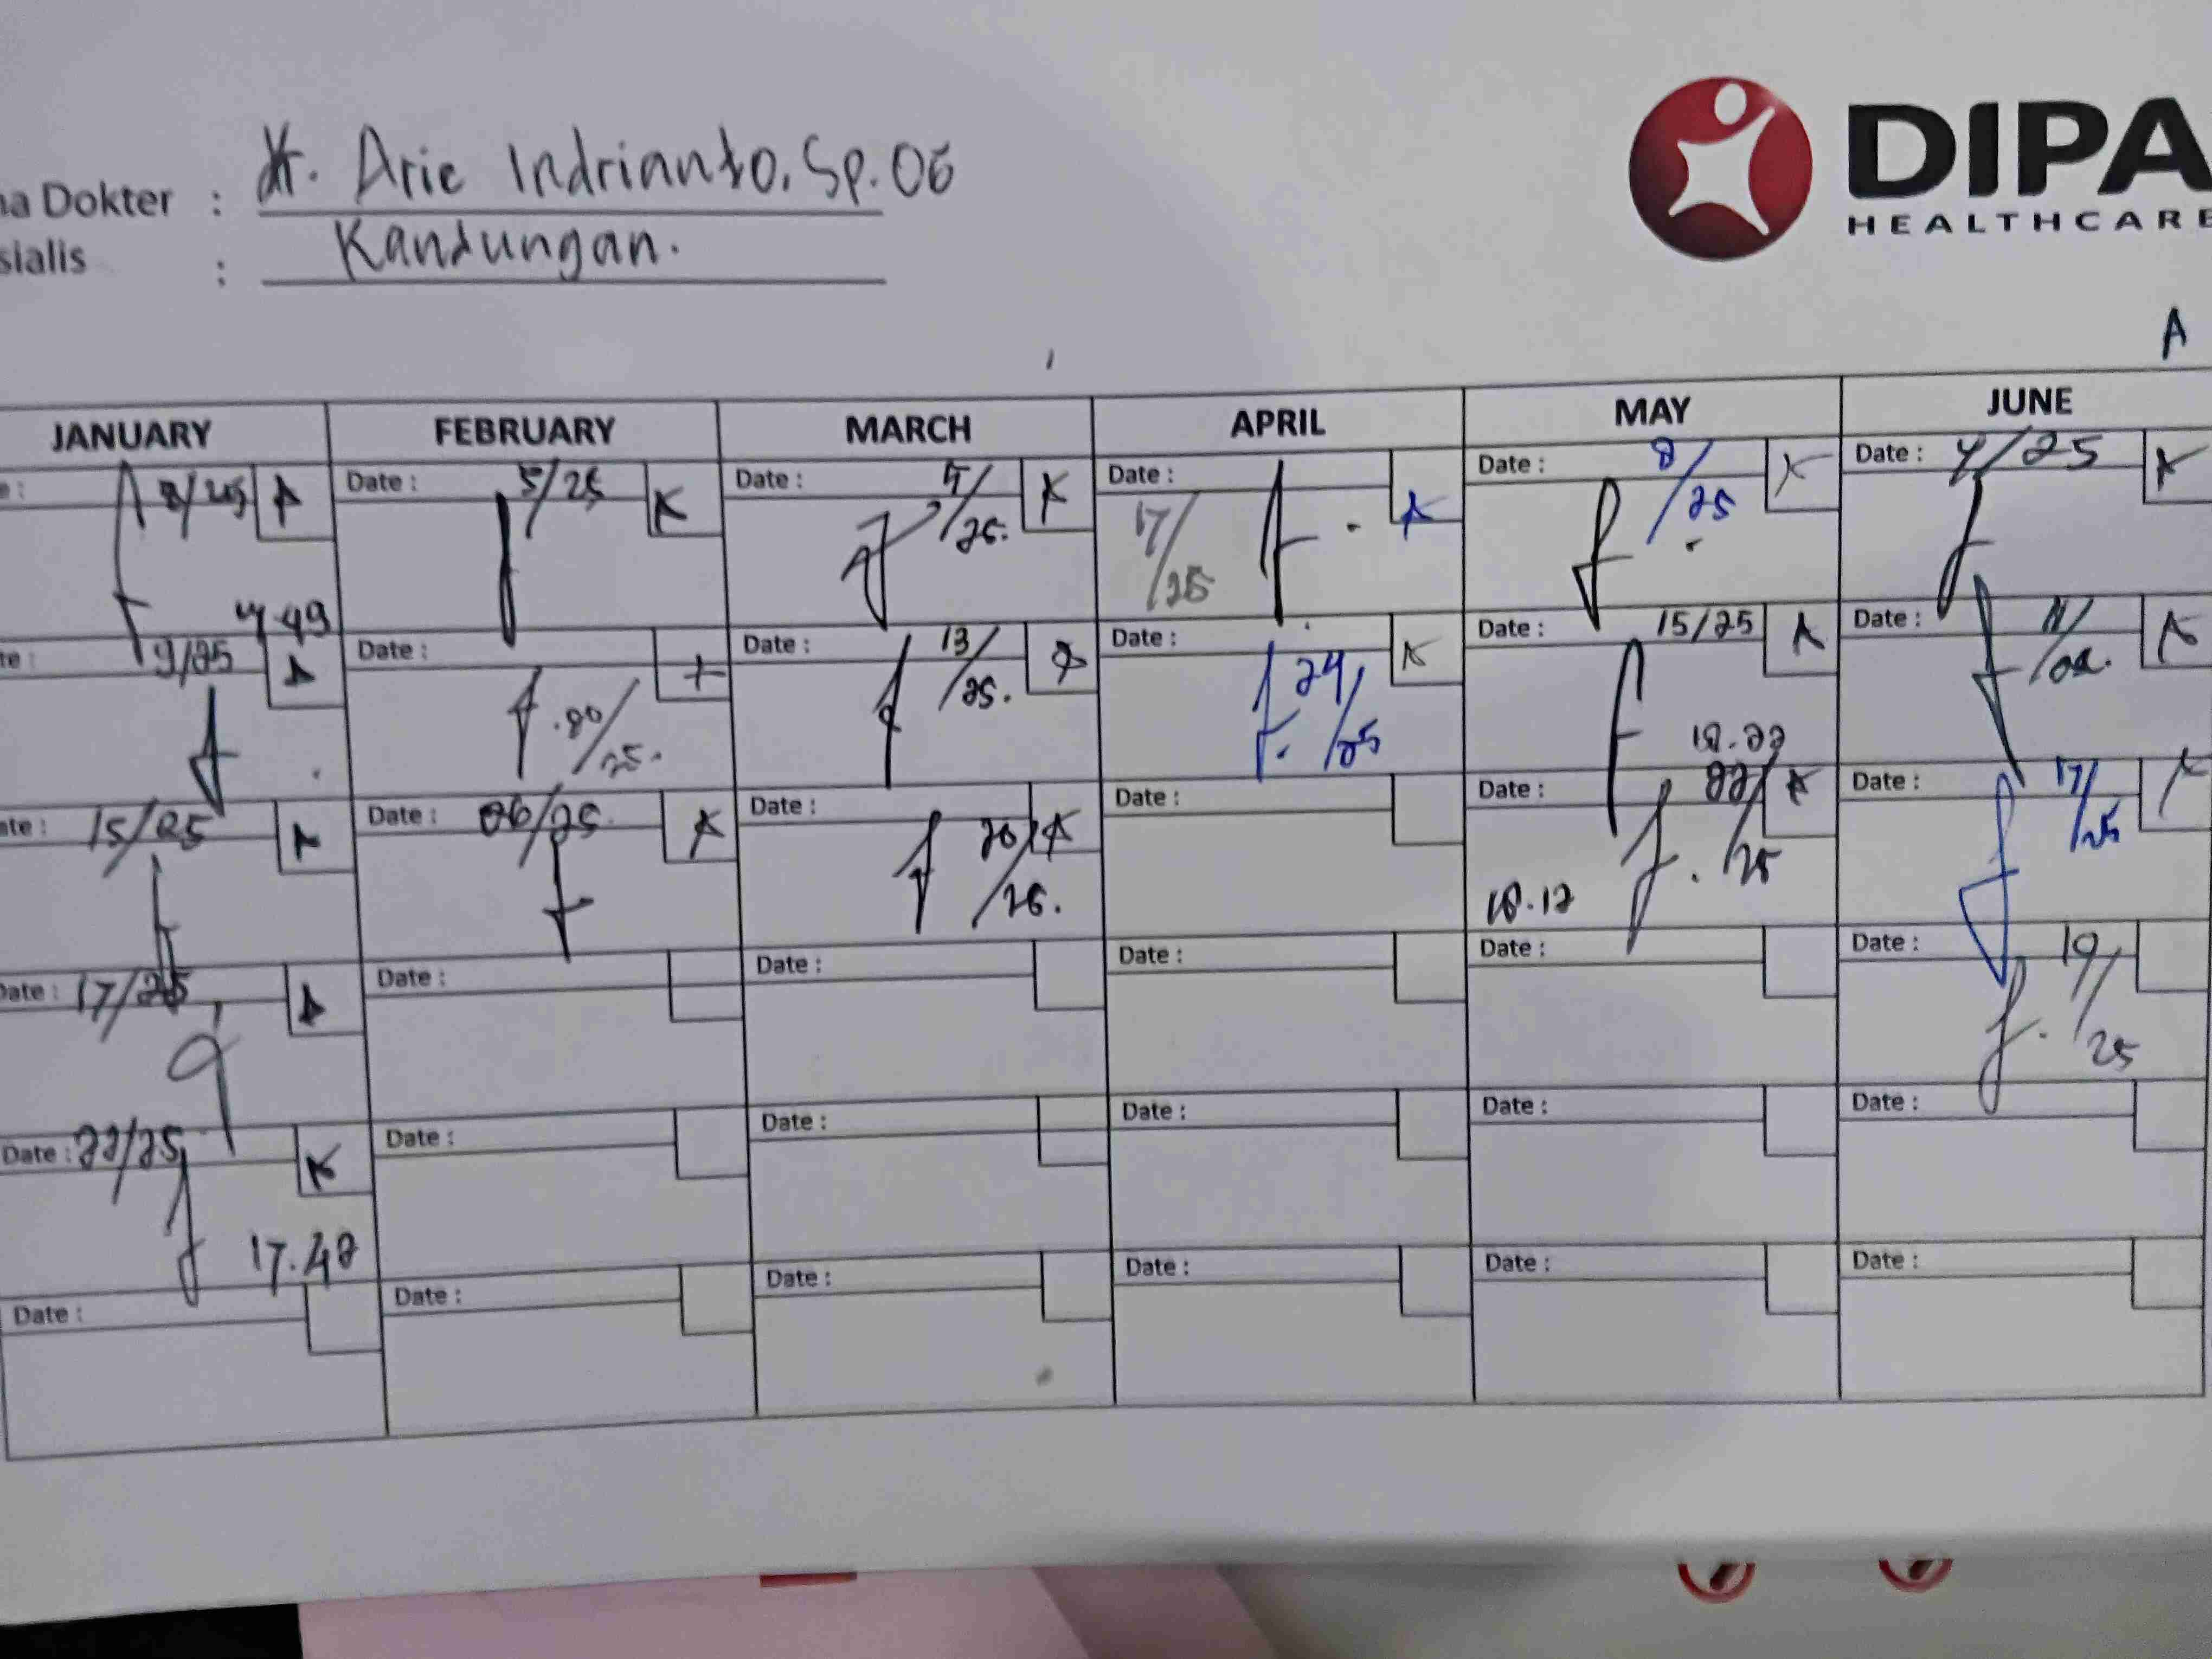 DIPA
HEALTHCARE
na Dokter : dr. Arie Indrianto. Sp.OG
sialis : Kandungan.
A
JANUARY FEBRUARY MARCH APRIL MAY JUNE
e : 8/25 A Date : 5/25 K Date : /25. K Date : 17/25 K Date : 8/25 K Date : 4/25 K
te : 9/25 A Date : /25. Date : 13/25. Date : 24/25 K Date : 15/25 A Date : 11/ A
18.22
ate : 15/25 A Date : 26/25. K Date : 20/25. K Date : Date : 22/25 K Date : 17/25
18.12
Date : 17/25 A Date : Date : Date : Date : Date : 19/25
Date : 22/25 K Date : Date : Date : Date : Date :
17.42
Date : Date : Date : Date : Date : Date :